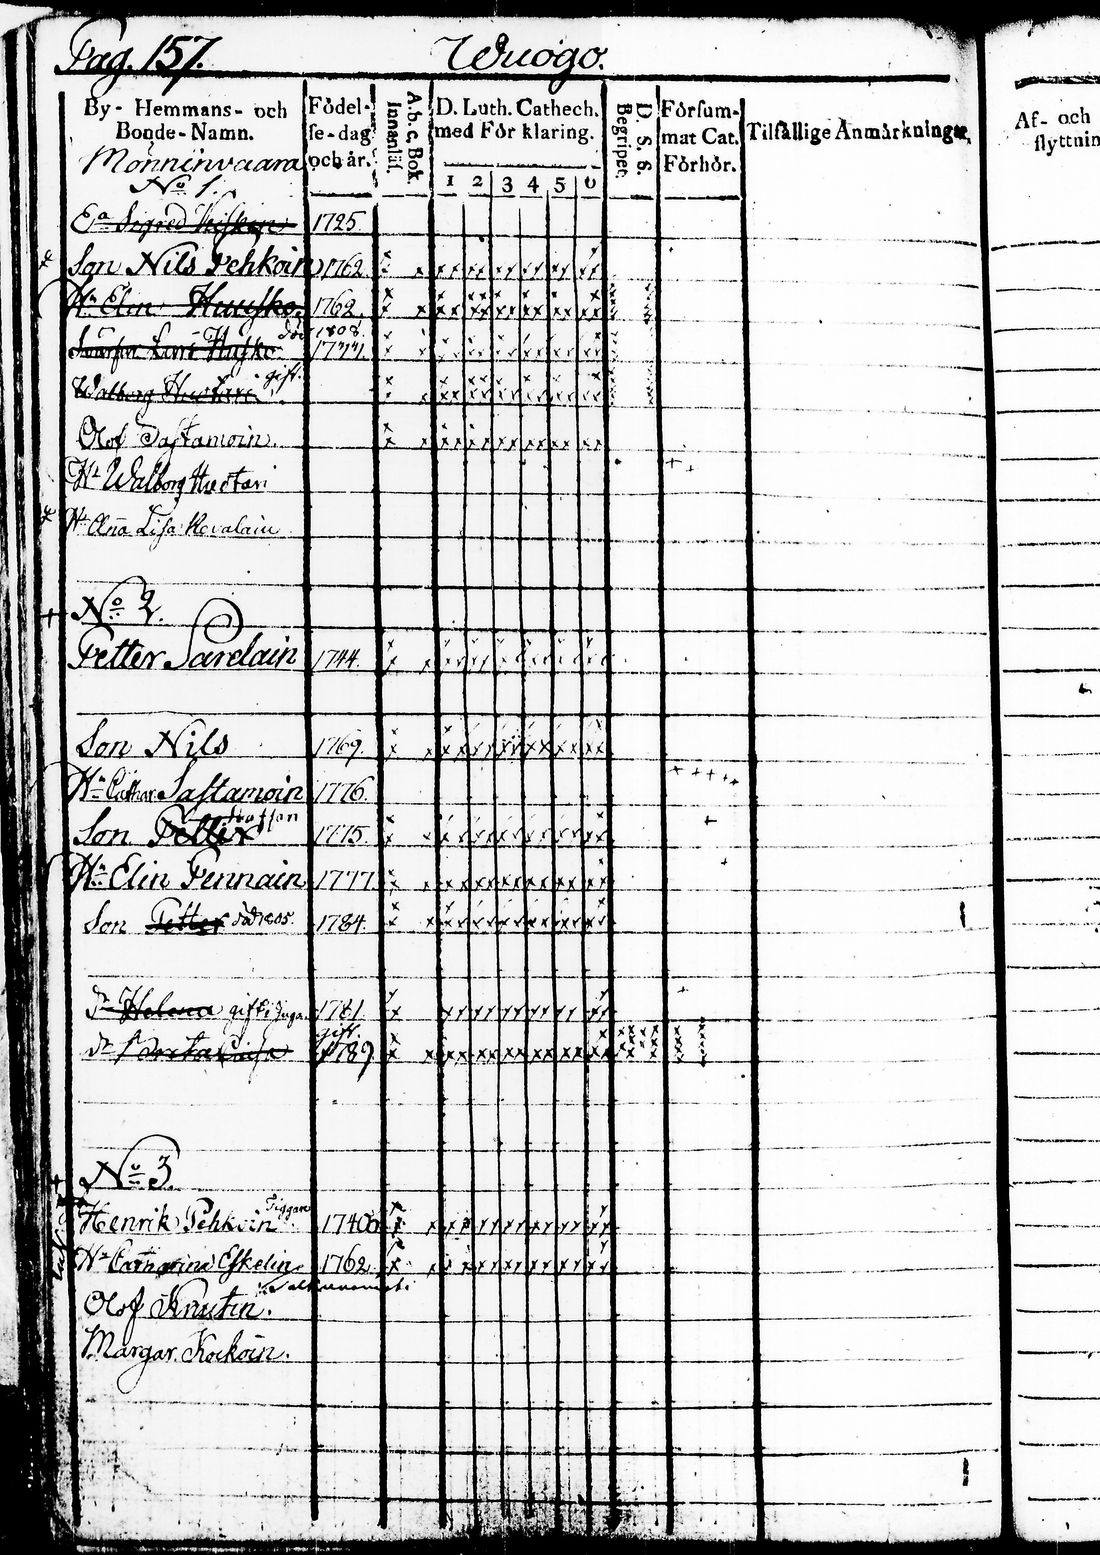 Pag. 157.
Wuogo.
By- Hemmans- och
Bonde-Namn.
Födel-
se-dag
och år.
A.b.c. Bok.
Innanläs.
D. Luth. Cathech.
med För klaring.
1 2 3 4 5 6
D. S. 6.
Begripet.
Försum-
mat Cat.
Förhör.
Tilfällige Anmärkningar,
Af- och
flyttnin
Mönninvaara
No 1.
Ea Sigred 1725
Son Nils Pehkoin 1762
Hu Elin Huusko 1762
död 1808.
Husko 1771
Walborg Hustari gift.
Olof Sastamoin.
Hu Walborg Hustari
Hu Aña Lisa Kovalain
No 2.
Petter Parelain 1744.
Son Nils 1769.
Hu Cathar. Sastamoin 1776.
Staffan
Son Petter 1775
Hu Elin Pennain 1777
Son Petter död 1805. 1784
Dr Helena gift i Juga 1781
gift
Dr 1789
No 3.
Tiggare
Henrik Pehkoin 1740
Hu Catharina Eskelin 1762
Olof Knutin.
Margar. Kockoin.